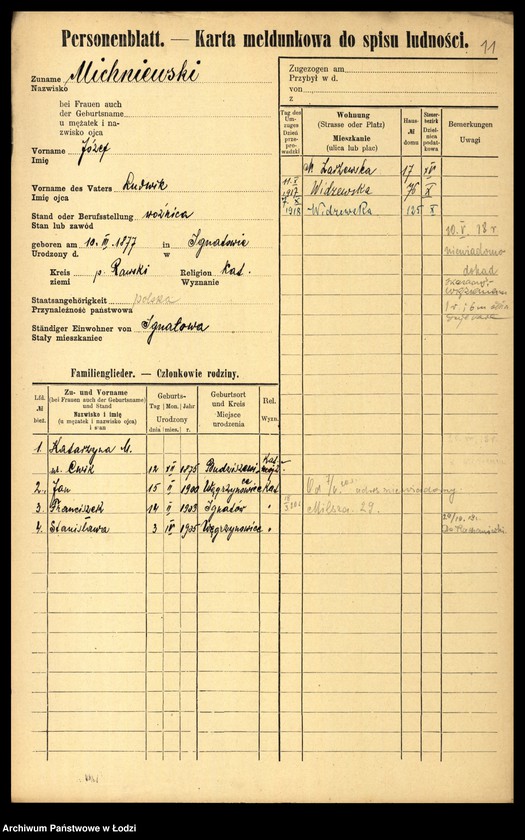 Personenblatt. — Karta meldunkowa do spisu ludności. 11
Zuname Michniewski
Nazwisko
bei Frauen auch
der Geburtsname
u mężatek i na-
zwisko ojca
Vorname Józef
Imię
Vorname des Vaters Ludwik
Imię ojca
Stand oder Berufsstellung woźnica
Stan lub zawód
geboren am 10. III. 1877 in Ignatowie
Urodzony d. w
Kreis p. Rawski Religion Kat.
ziemi Wyznanie
Staatsangehörigkeit polska
Przynależność państwowa
Ständiger Einwohner von Ignatowa
Stały mieszkaniec
Zugezogen am
Przybył w d.
von
z
Tag des Um-zuges Dzień prze-prowadzki
Wohnung (Strasse oder Platz) Mieszkanie (ulica lub plac)
Haus- № domu
Steuer-bezirk Dzielnica podatkowa
Bemerkungen Uwagi
Zarzewska 17 XV
11.X 1917 Widzewska 76 X
7.X 1918 Widzewska 125 X
10. V. 18 r.
niewiadomo
dokąd
Familienglieder. — Członkowie rodziny.
Lfd. № bież.
Zu- und Vorname (bei Frauen auch der Geburtsname) und Stand Nazwisko i imię (u mężatek i nazwisko ojca) i stan
Geburts- Tag Mon. Jahr Urodzony dnia mies. r.
Geburtsort und Kreis Miejsce urodzenia
Rel. Wyzn.
1. Katarzyna M.
ur. Ćwik 12 XII 1875 Kat.
2. Jan 15 II 1900 Węgrzynowice Kat
3. Franciszek 14 II 1903 Ignatów "
4. Stanisława 3 IV 1905 Węgrzynowice "
adres niewiadomy
Milsza 29.
Archiwum Państwowe w Łodzi